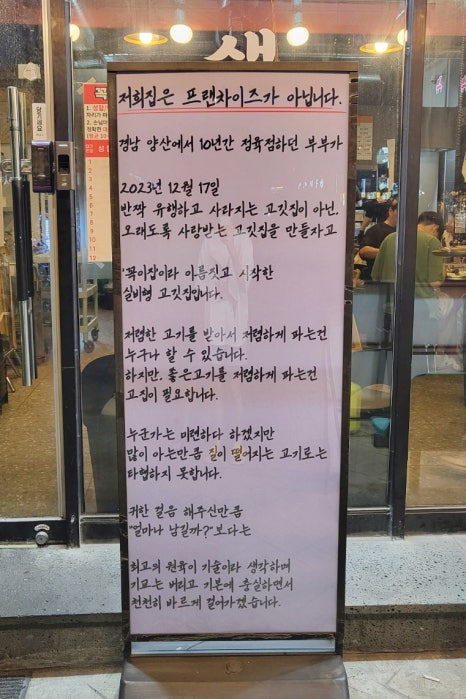 새
저희집은 프랜차이즈가 아닙니다.
경남 양산에서 10년간 정육점하던 부부가
2023년 12월 17일
반짝 유행하고 사라지는 고깃집이 아닌,
오래도록 사랑받는 고깃집을 만들자고
이라 이름짓고 시작한
실비형 고깃집입니다.
저렴한 고기를 받아서 저렴하게 파는건
누구나 할 수 있습니다.
하지만, 좋은고기를 저렴하게 파는건
고집이 필요합니다.
누군가는 미련하다 하겠지만
많이 아는만큼 질이 떨어지는 고기로는
타협하지 못합니다.
귀한 걸음 해주신만큼
"얼마나 남길까?"보다는
최고의 원육이 기술이라 생각하며
기교는 버리고 기본에 충실하면서
천천히 바르게 걸어가겠습니다.